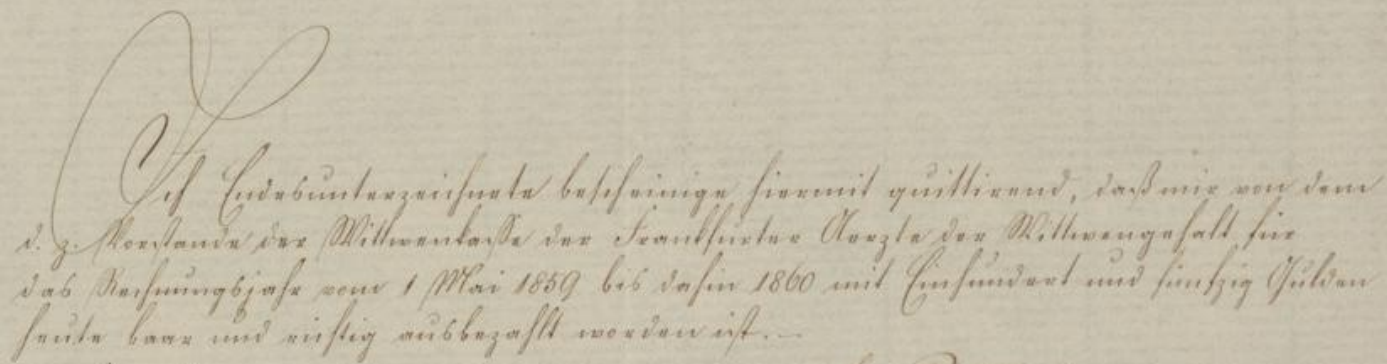 Ich Endesunterzeichnete bescheinige hiermit quittirend, daß mir von dem
d. z. Vorstande der Wittwenkasse der Frankfurter Aerzte der Wittwengehalt für
das Rechnungsjahr vom 1 Mai 1859 bis dahin 1860 mit Einhundert und fünfzig Gulden
heute baar und richtig ausbezahlt worden ist. —